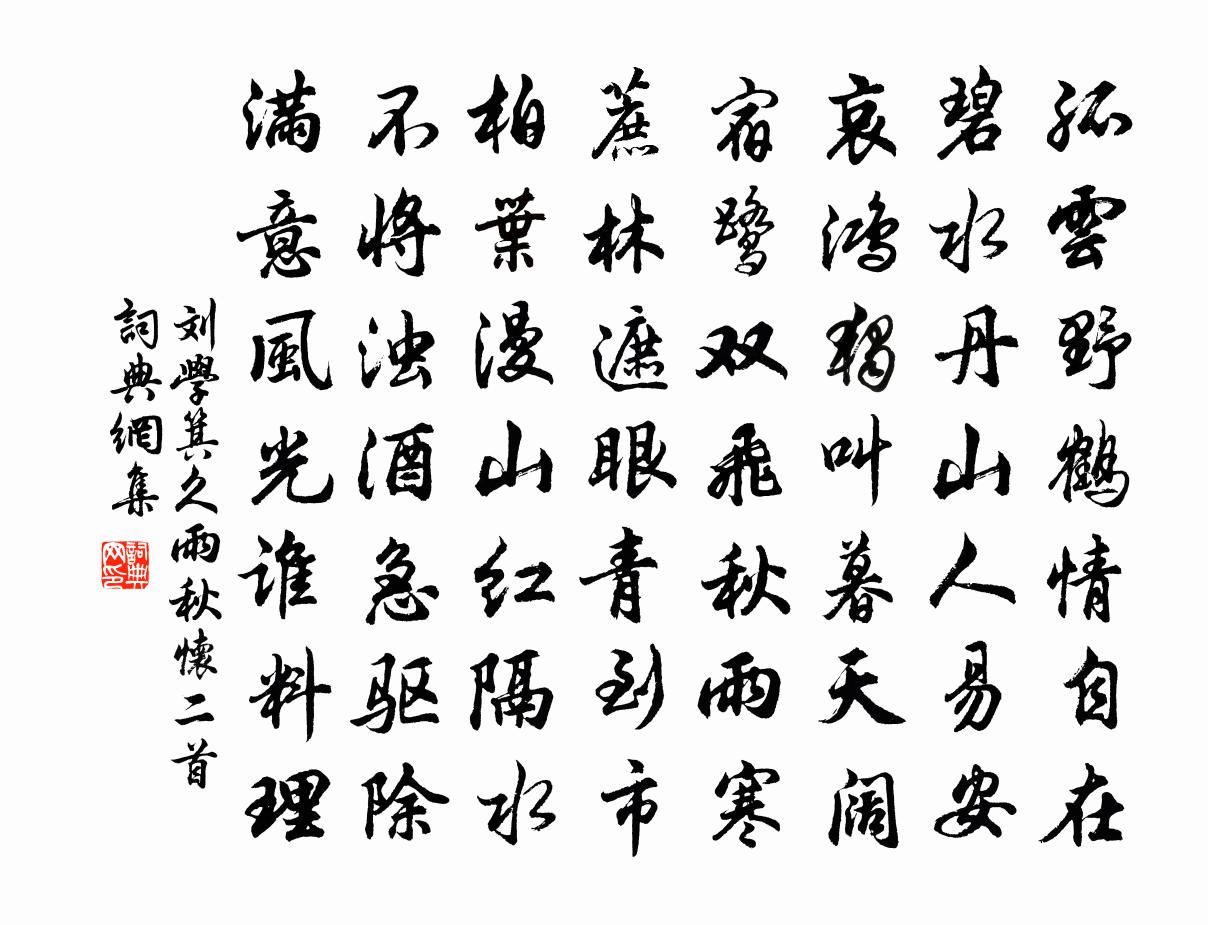 孤雲野鶴情自在
碧水丹山人易安
哀鴻獨叫暮天阔
宿鷺双飛秋雨寒
蔗林遮眼青到市
柏葉漫山红隔水
不将浊酒急驱除
满意風光谁料理
刘學箕久雨秋懷二首
詞典網集
詞典网印